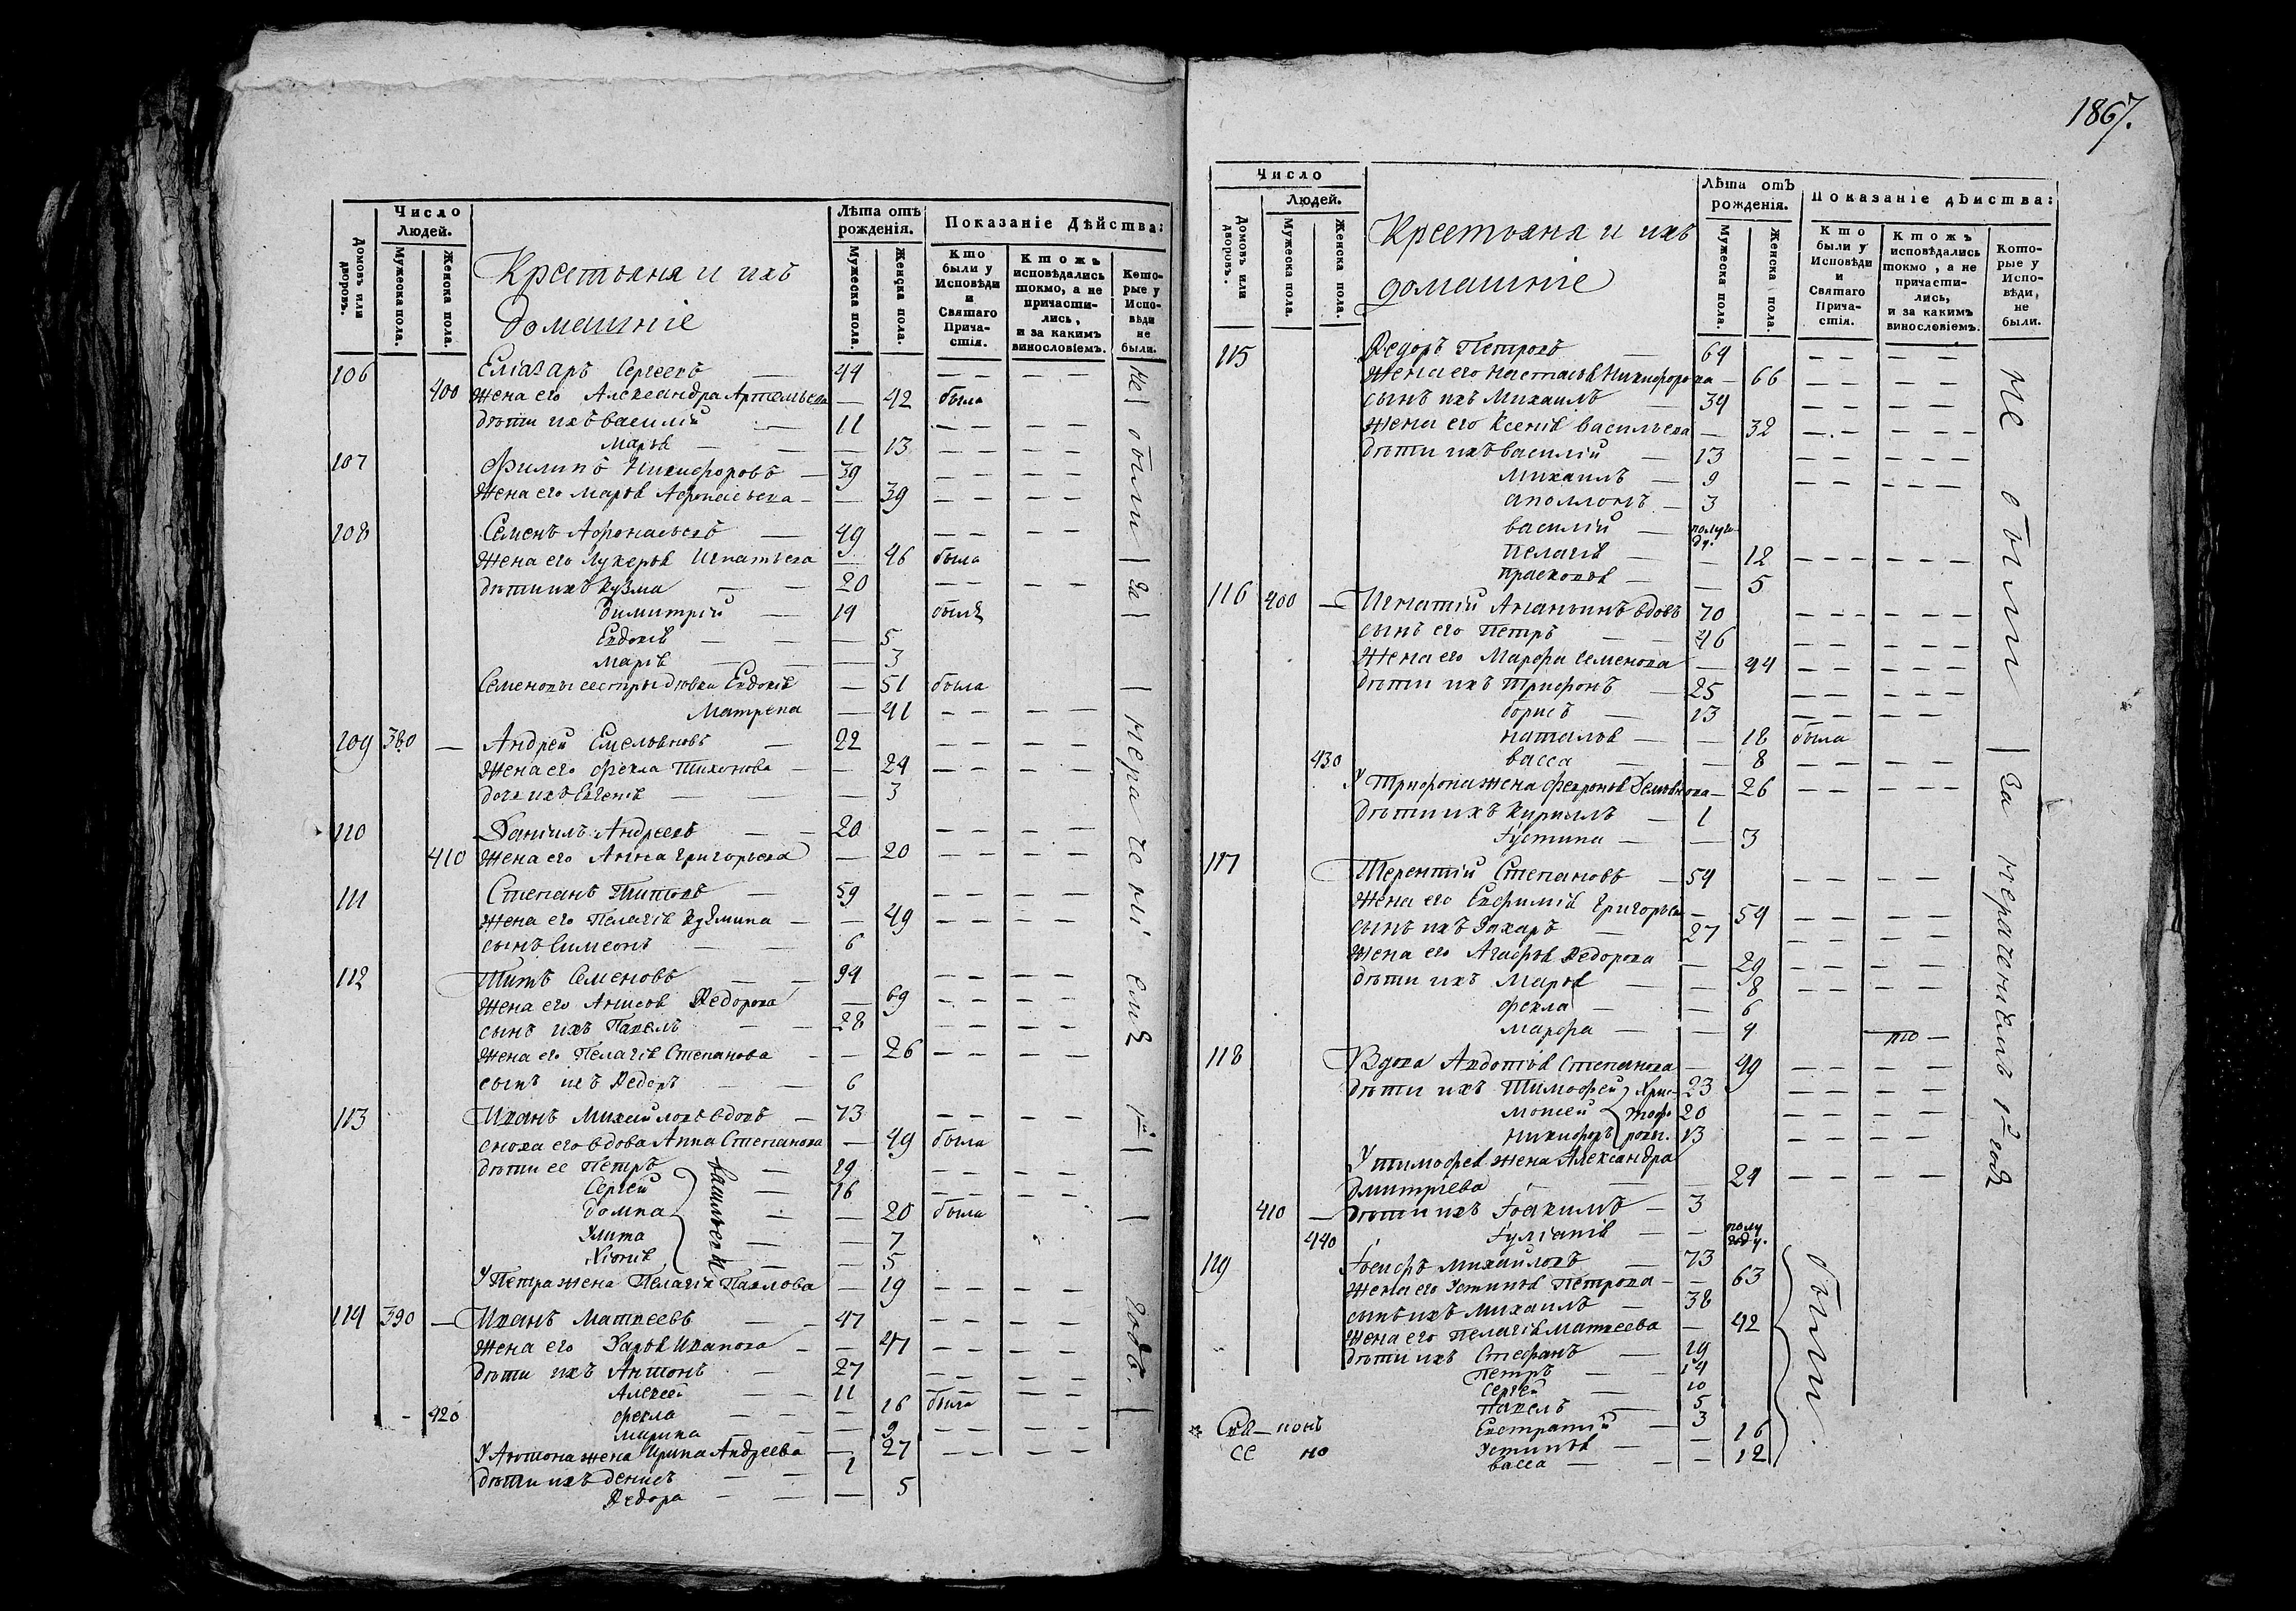 Число
Людей.
Домовъ или дворовъ.
Мужеска пола.
Женска пола.
Крестьяня и ихъ
домашніе
Лѣта отъ
рожденія.
Мужеска пола.
Женска пола.
Показаніе Дѣйства:
Кто были у Исповѣди и Святаго Прича-стія.
Ктожъ исповѣдались токмо, а не причасти-лись, и за какимъ винословіемъ.
Кото-рые у Испо-вѣди не были.
106 Еліазаръ Сергеевъ — 44
400 Жена его Александра Артемьева — 42 была
дѣти ихъ василій — 11
Марѳа — 13
107 Филипъ Никифоровъ — 39
Жена его Марѳа Афонасьева — 39
108 Семенъ Афонасьевъ — 49
Жена его Лукерья Игнатьева — 46 была
дѣти ихъ Кузма — 20
Димитрій — 19 былъ
Евдокія — 5
Марія — 3
Семеновы сестры девки Евдокія — 51 была
Матрена — 41
109 380 — Андрей Емельяновъ — 22
Жена его Фекла Тихонова — 24
дочь ихъ Евгенія — 3
110 Даніилъ Андреевъ — 20
410 Жена его Анна Григорьева — 20
111 Степанъ Титовъ — 59
Жена его Пелагія Кузмина — 49
сынъ Симеонъ — 6
112 Титъ Семеновъ — 94
Жена его Анисья Ѳедорова — 69
сынъ ихъ Павелъ — 28
Жена его Пелагія Степанова — 26
сынъ ихъ Ѳедоръ — 6
113 Иванъ Михайловъ вдовъ — 73
сноха его вдова Анна Степанова — 49 была
дѣти ее Петръ — 29
Сергей — 16
Домна — 20 была
Улита — 7
Хіонія — 5
васильевы
У Петра жена Пелагія Павлова — 19
114 390 — Иванъ Матвеевъ — 47
Жена его Дарья Иванова — 47
дѣти ихъ Антонъ — 27
Алексей — 11
420 Фекла — 16 была
Марина — 9
У Антона жена Ирина Андреева — 27
дѣти ихъ Денисъ — 1
Ѳедора — 5
не были за нераченіемъ 1й годъ.
1867.
Число
Людей.
Домовъ или дворовъ.
Мужеска пола.
Женска пола.
Крестьяня и ихъ
домашніе
Лѣта отъ
рожденія.
Мужеска пола.
Женска пола.
Показаніе дѣиства:
Кто были у Исповѣди и Святаго Прича-стія.
Ктожъ исповѣдались токмо, а не причасти-лись, и за какимъ винословіемъ.
Кото-рые у Испо-вѣди, не были.
115 Ѳедоръ Петровъ — 64
Жена его Настасья Никифорова — 66
сынъ ихъ Михаилъ — 34
Жена его Ксенія васильева — 32
дѣти ихъ василій — 13
Михаилъ — 9
аполлонъ — 3
василій — полуго ду.
Пелагія — 12
Прасковья — 5
116 400 — Игнатій Ананьинъ вдовъ 70
сынъ его Петръ — 46
Жена его Марфа Семенова — 44
дѣти ихъ Трифонъ — 25
борисъ — 13
наталья — 18 была
430 васса — 8
У Трифона жена Феврония Демьянова — 26
дѣти ихъ Кирилъ — 1
Іустина — 3
117 Терентій Степановъ — 54
Жена его Евфимія Григорьева — 54
сынъ ихъ Захаръ — 27
Жена его Агафья Ѳедорова — 29
дѣти ихъ Марья — 8
Фекла — 6
Марфа — 4
то
118 Вдова Авдотья Степанова — 49
дѣти ихъ Тимофей — 23
Моисей — 20
Никифоръ — 13
Хрис-тофо-ровы.
У тимофея жена Александра
Дмитріева — 24
410 — дѣти ихъ Іоакимъ — 3
440 Іуліанія — полу году.
119 Іосифъ Михаиловъ — 73
Жена его Устинья Петрова — 63
сынъ ихъ Михаилъ — 38
Жена его Пелагія Матвеева — 42
дѣти ихъ Стефанъ — 19
Петръ — 14
Сергей — 10
Павелъ — 5
Евстратій — 3
Устинья — 16
васса — 12
были.
не были за нераченіемъ 1й годъ
нонъ
се но